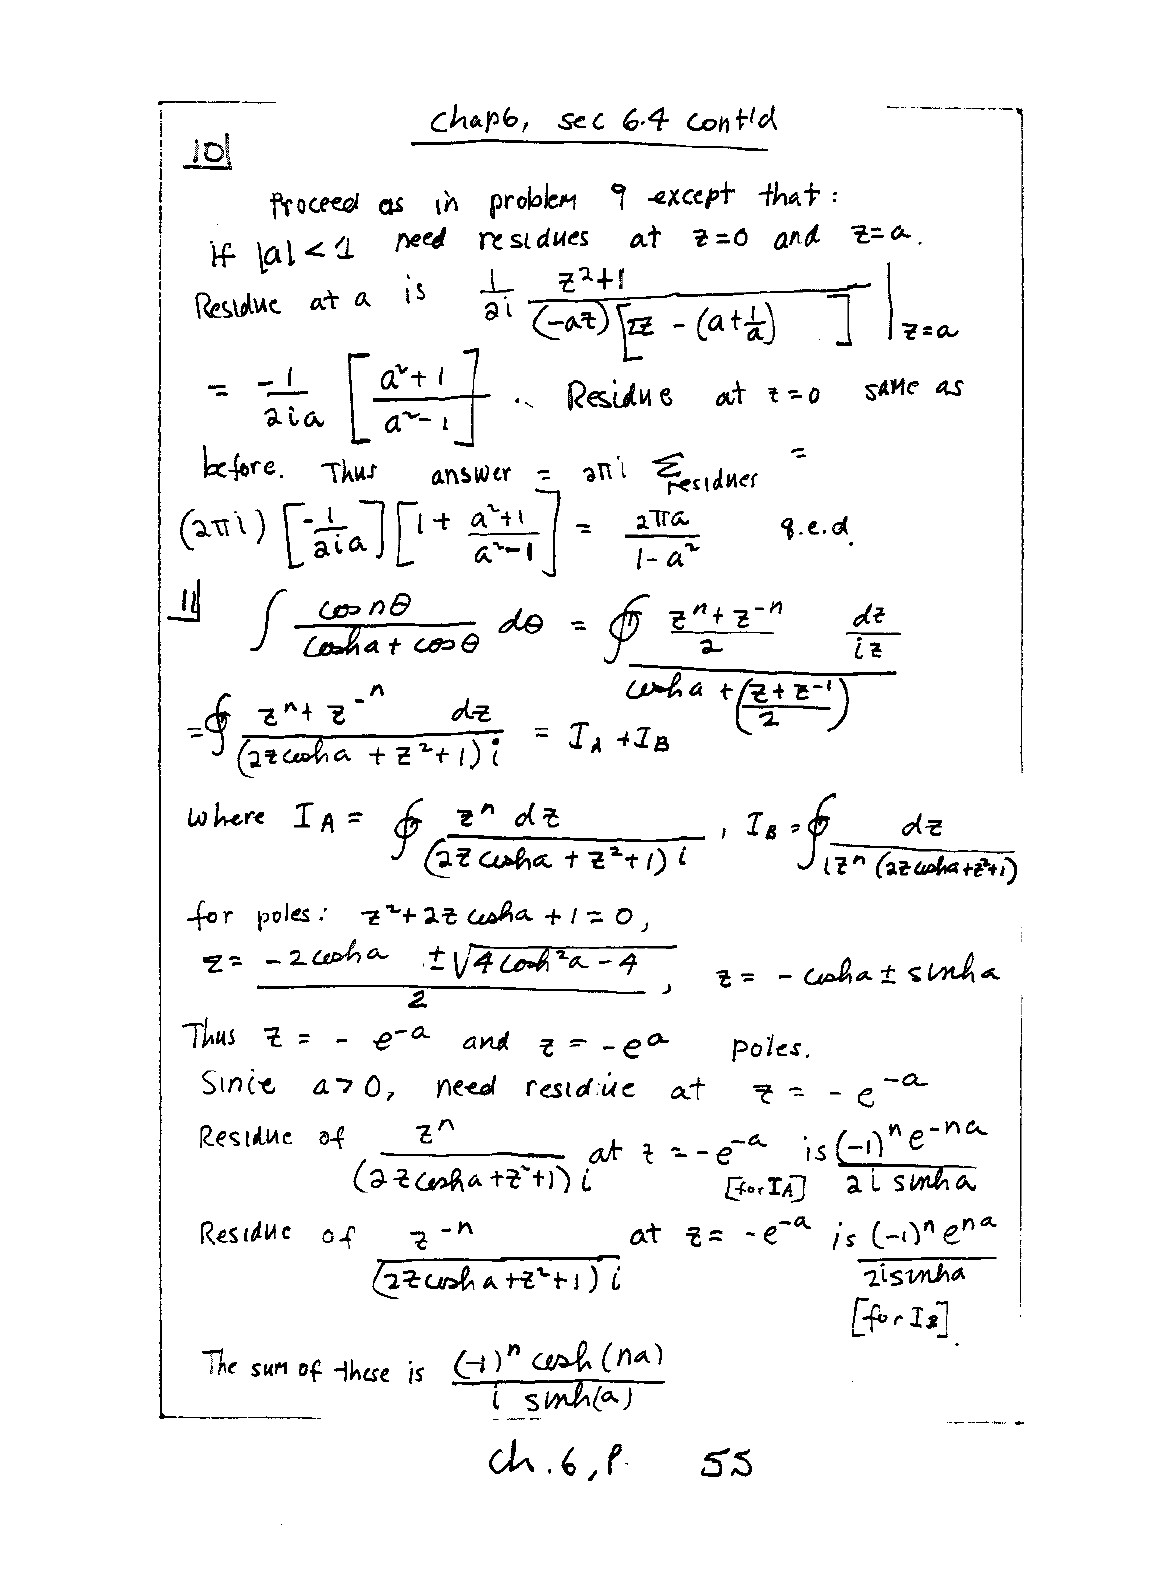 chap6, sec 6.4 cont'd
10
Proceed as in problem 9 except that:
If |a| < 1 need residues at z=0 and z=a.
Residue at a is 1/2i (z²+1)/((-az)[2z - (a+1/a)]) |z=a
= -1/2ia [(a²+1)/(a²-1)] .. Residue at z=0 same as
before. Thus answer = 2πi Σresidues =
(2πi) [-1/2ia] [1 + (a²+1)/(a²-1)] = 2πa/(1-a²) q.e.d.
11 ∫ cos nθ/(cosh a + cos θ) dθ = ∮ ((zⁿ+z⁻ⁿ)/2)/(cosh a + (z+z⁻¹)/2) dz/iz
= ∮ (zⁿ+z⁻ⁿ) dz/((2z cosh a + z²+1) i) = I_A + I_B
where I_A = ∮ zⁿ dz/((2z cosh a + z²+1) i), I_B = ∮ dz/(i zⁿ (2z cosh a + z²+1))
for poles: z²+2z cosh a + 1 = 0,
z = (-2cosh a ± √(4cosh²a - 4))/2, z = - cosh a ± sinh a
Thus z = - e⁻ᵃ and z = -eᵃ poles.
Since a>0, need residue at z = - e⁻ᵃ
Residue of zⁿ/((2z cosh a + z²+1) i) at z = -e⁻ᵃ is (-1)ⁿ e⁻ⁿᵃ/(2i sinh a) [for I_A]
Residue of z⁻ⁿ/((2z cosh a + z²+1) i) at z = -e⁻ᵃ is (-1)ⁿ eⁿᵃ/(2i sinh a)
[for I_B]
The sum of these is (-1)ⁿ cosh(na)/(i sinh(a))
Ch.6, P. 55